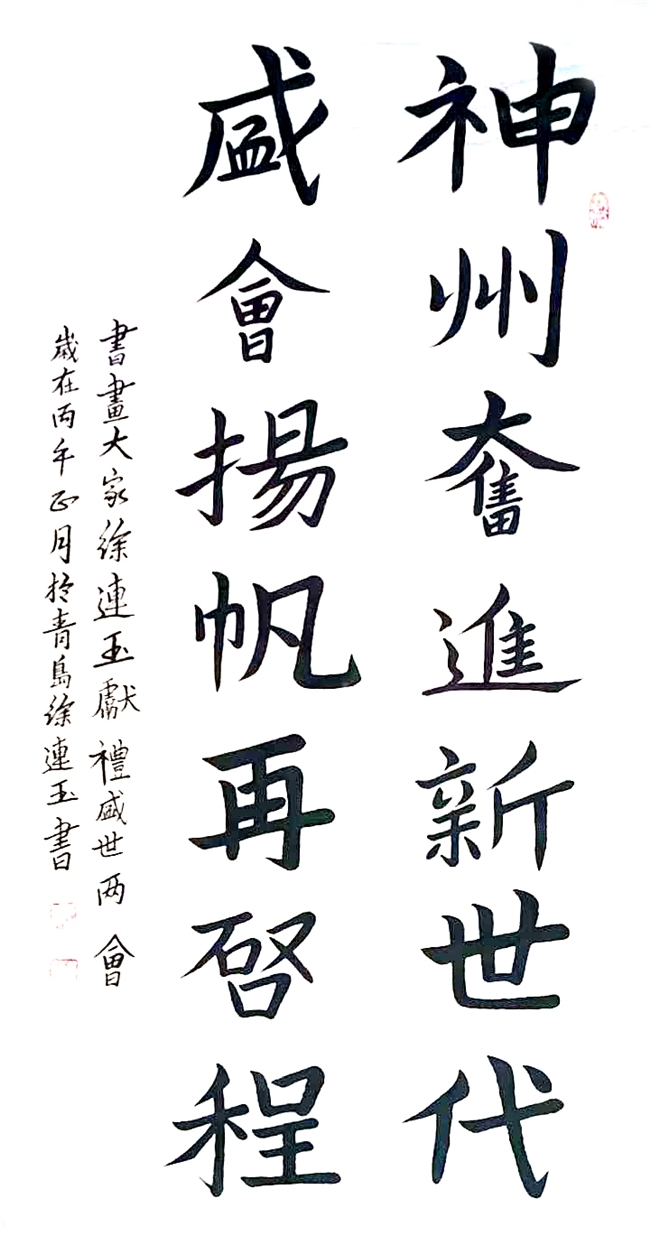 神州奮進新世代
盛會揚帆再啓程
書畫大家徐連玉獻禮盛世两會
歲在丙午正月於青島徐連玉書